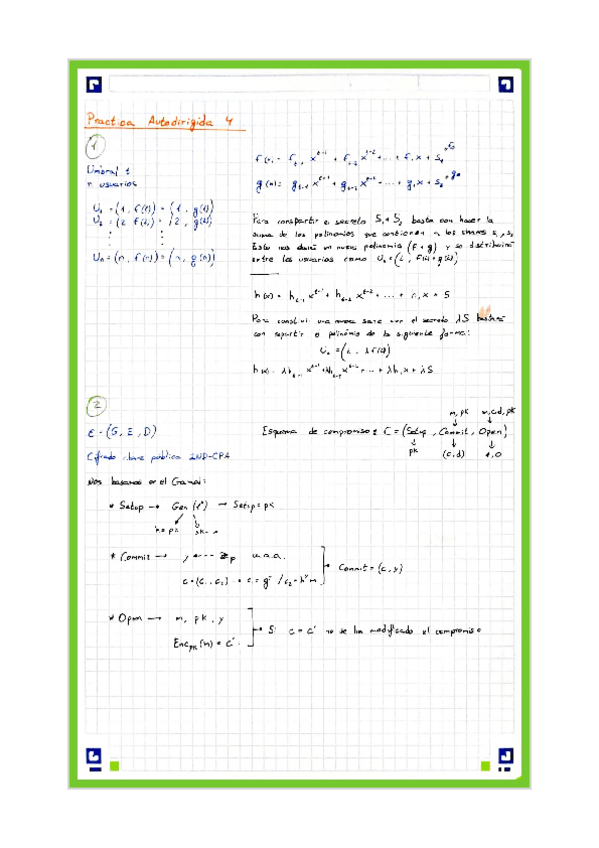 Practica Autodirigida 4
1
Umbral t
n usuarios
U₁ = (1, f(1)) = (1, g(1))
U₂ = (2, f(2)) = (2, g(2))
⋮ ⋮
Uₙ = (n, f(n)) = (n, g(n))
f(x) = f_{t-1} x^{t-1} + f_{t-2} x^{t-2} + ... + f₁x + S₁
g(x) = g_{t-1} x^{t-1} + g_{t-2} x^{t-2} + ... + g₁x + S₂
Para compartir el secreto S₁ + S₂ basta con hacer la
suma de los polinomios que contienen a los shares S₁, S₂
Esto nos dará un nuevo polinomio (f + g) y se distribuirá
entre los usuarios como Uᵢ = (i, f(i) + g(i))
h(x) = h_{t-1} x^{t-1} + h_{t-2} x^{t-2} + ... + h₁x + S
Para construir una nueva share con el secreto λS bastará
con repartir el polinomio de la siguiente forma:
Uᵢ = (i, λf(i))
h(x) = λh_{t-1} x^{t-1} + λh_{t-2} x^{t-2} + ... + λh₁x + λS
2
ε = (G, E, D)
Cifrado clave publica IND-CPA
m, pk m, c, d, pk
Esquema de compromiso: C = (Setup, Commit, Open)
pk (c, d) 1, 0
Nos basamos en el Gamal:
* Setup → Gen(1ⁿ) → Setup = pk
h = pk sk =
* Commit → y ← ℤp u.a.a.
c = (c₁, c₂) c₁ = g^y / c₂ = h^y m
Commit = (c, y)
* Open → m, pk, y
Enc_{pk}(m) = c'
Si c = c' no se ha modificado el compromiso